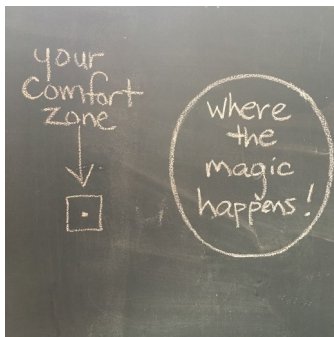 your
comfort
zone
where
the
magic
happens!